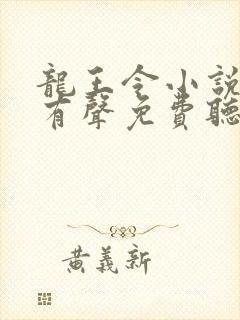 龍王令小說
有聲免費聽
黃義新